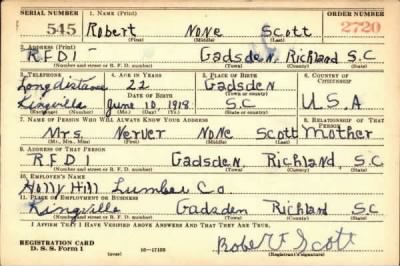 SERIAL NUMBER 1. NAME (Print) ORDER NUMBER
545 Robert None Scott 2720
(First) (Middle) (Last)
2. ADDRESS (Print)
R.F.D 1 Gadsden, Richland S.C
(Number and street or R. F. D. number) (Town) (County) (State)
3. TELEPHONE 4. AGE IN YEARS 5. PLACE OF BIRTH 6. COUNTRY OF CITIZENSHIP
Long distance 22 Gadsden
DATE OF BIRTH (Town or county)
Kingville June 10 1918 S.C U.S.A
(Exchange) (Number) (Mo.) (Day) (Yr.) (State or country)
7. NAME OF PERSON WHO WILL ALWAYS KNOW YOUR ADDRESS 8. RELATIONSHIP OF THAT PERSON
Mrs. Nerver None Scott Mother
(Mr., Mrs., Miss) (First) (Middle) (Last)
9. ADDRESS OF THAT PERSON
R.F.D 1 Gadsden, Richland, S.C
(Number and street or R. F. D. number) (Town) (County) (State)
10. EMPLOYER'S NAME
Holly Hill Lumber Co.
11. PLACE OF EMPLOYMENT OR BUSINESS
Kingville Gadsden Richland S.C
(Number and street or R. F. D. number) (Town) (County) (State)
I AFFIRM THAT I HAVE VERIFIED ABOVE ANSWERS AND THAT THEY ARE TRUE.
REGISTRATION CARD
D. S. S. Form 1 Robert Scott
(over) 16—17105 (Registrant's signature)